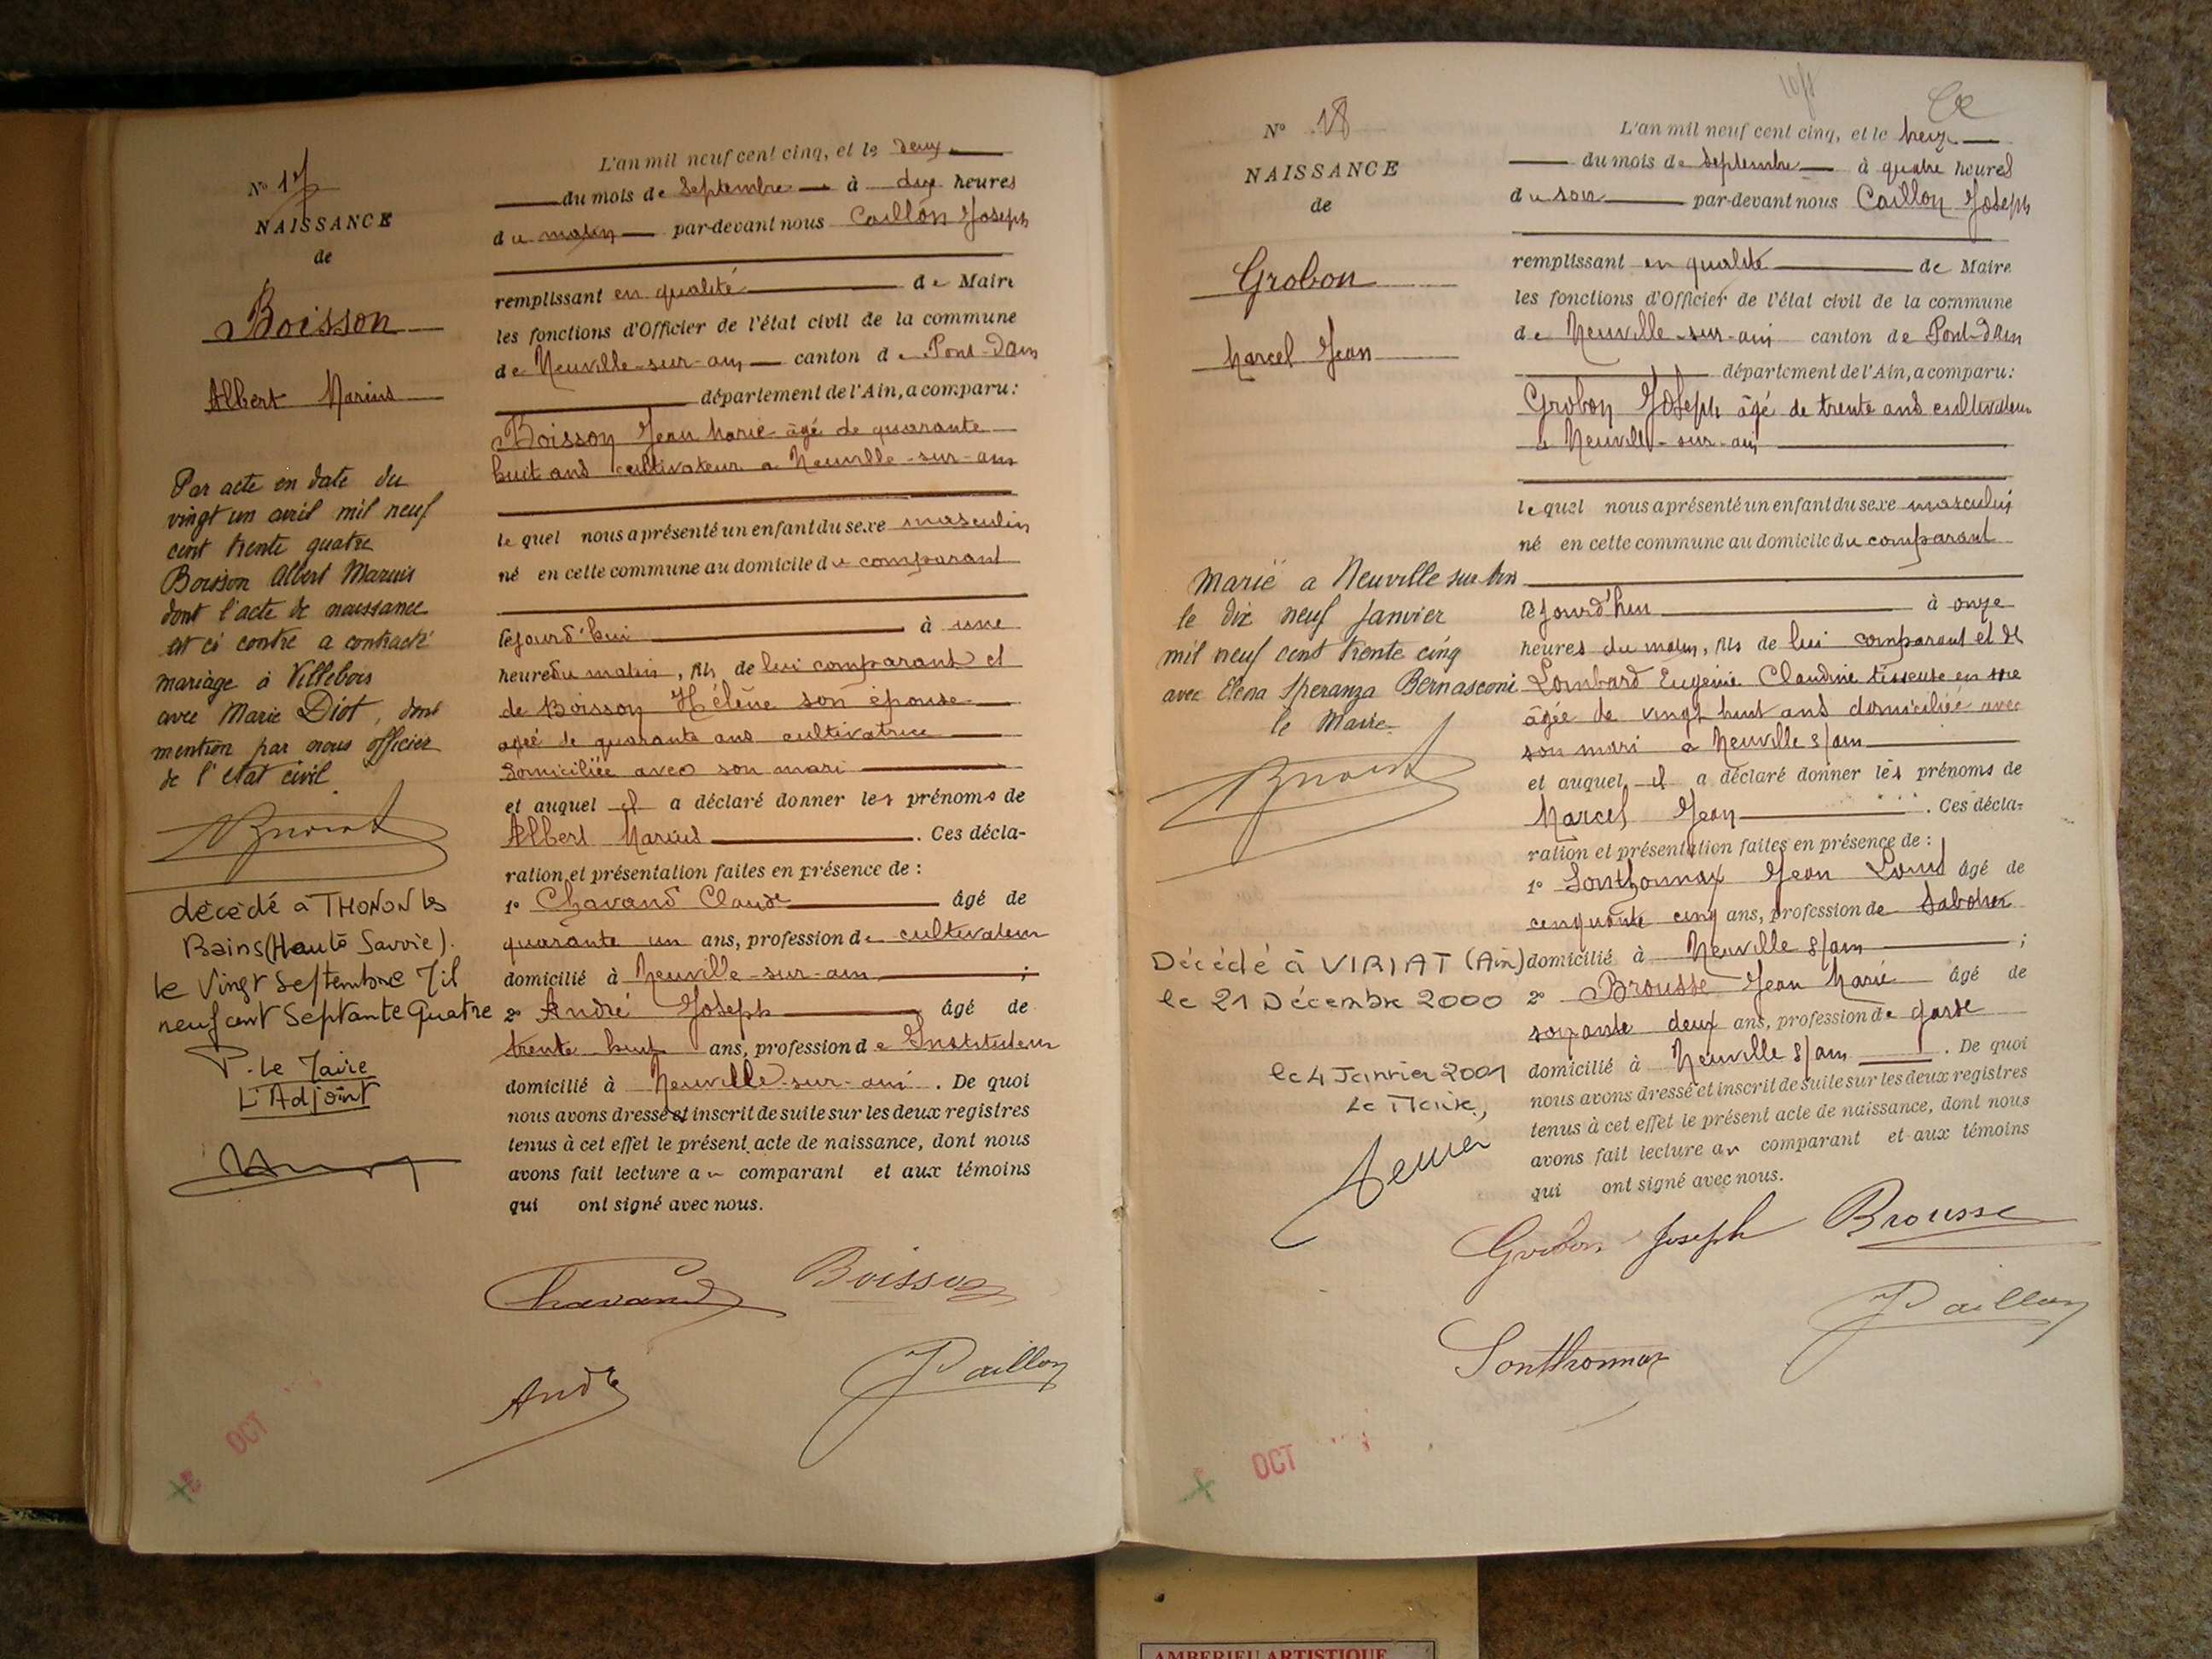 N° 17
NAISSANCE
de
Boisson
Albert Marius
Par acte en date du
vingt un avril mil neuf
cent trente quatre
Boisson Albert Marius
dont l'acte de naissance
est ci contre a contracté
mariage à Villebois
avec Marie Diot, dont
mention par nous officier
de l'état civil.
décédé à THONON les
Bains (Haute Savoie).
le Vingt Septembre Mil
neuf cent Septante Quatre
P. Le Maire
L'Adjoint
L'an mil neuf cent cinq, et le deux
du mois de Septembre à dix heures
du matin par-devant nous Caillon Joseph
remplissant en qualité de Maire
les fonctions d'Officier de l'état civil de la commune
de Neuville-sur-ain canton de Pont-d'Ain
département de l'Ain, a comparu:
Boisson Jean Marie âgé de quarante
huit ans cultivateur a Neuville-sur-ain
le quel nous a présenté un enfant du sexe masculin
né en cette commune au domicile du comparant
cejourd'hui à une
heure du matin, fils de lui comparant et
de Boisson Hélène son épouse
agée de quarante ans cultivatrice
domiciliée avec son mari
et auquel il a déclaré donner les prénoms de
Albert Marius. Ces décla-
ration et présentation faites en présence de :
1° Chavand Claude âgé de
quarante un ans, profession de cultivateur
domicilié à Neuville-sur-ain ;
2° André Joseph âgé de
trente huit ans, profession de Instituteur
domicilié à Neuville-sur-ain. De quoi
nous avons dressé et inscrit de suite sur les deux registres
tenus à cet effet le présent acte de naissance, dont nous
avons fait lecture au comparant et aux témoins
qui ont signé avec nous.
Chavand Boisson
André JCaillon
OCT
N° 18
NAISSANCE
de
Grobon
Marcel Jean
Marié a Neuville sur Ain
le dix neuf Janvier
mil neuf cent trente cinq
avec Elena Speranza Bernasconi
le Maire
Décédé à VIRIAT (Ain)
le 21 Décembre 2000
le 4 Janvier 2001
Le Maire,
L'an mil neuf cent cinq, et le treize
du mois de Septembre à quatre heures
du soir par-devant nous Caillon Joseph
remplissant en qualité de Maire
les fonctions d'Officier de l'état civil de la commune
de Neuville-sur-ain canton de Pont-d'Ain
département de l'Ain, a comparu:
Grobon Joseph âgé de trente ans cultivateur
a Neuville-sur-ain
le quel nous a présenté un enfant du sexe masculin
né en cette commune au domicile du comparant
cejourd'hui à onze
heures du matin, fils de lui comparant et de
Lombard Eugénie Claudine tisseuse en soie
âgée de vingt huit ans domiciliée avec
son mari a Neuville s/ain
et auquel il a déclaré donner les prénoms de
Marcel Jean. Ces décla-
ration et présentation faites en présence de :
1° Sonthonnax Jean Louis âgé de
cinquante cinq ans, profession de Sabotier
domicilié à Neuville s/ain ;
2° Brousse Jean Marie âgé de
soixante deux ans, profession de garde
domicilié à Neuville s/ain. De quoi
nous avons dressé et inscrit de suite sur les deux registres
tenus à cet effet le présent acte de naissance, dont nous
avons fait lecture au comparant et aux témoins
qui ont signé avec nous.
Grobon Joseph Brousse
Sonthonnax JCaillon
OCT
AMBERIEU ARTISTIQUE